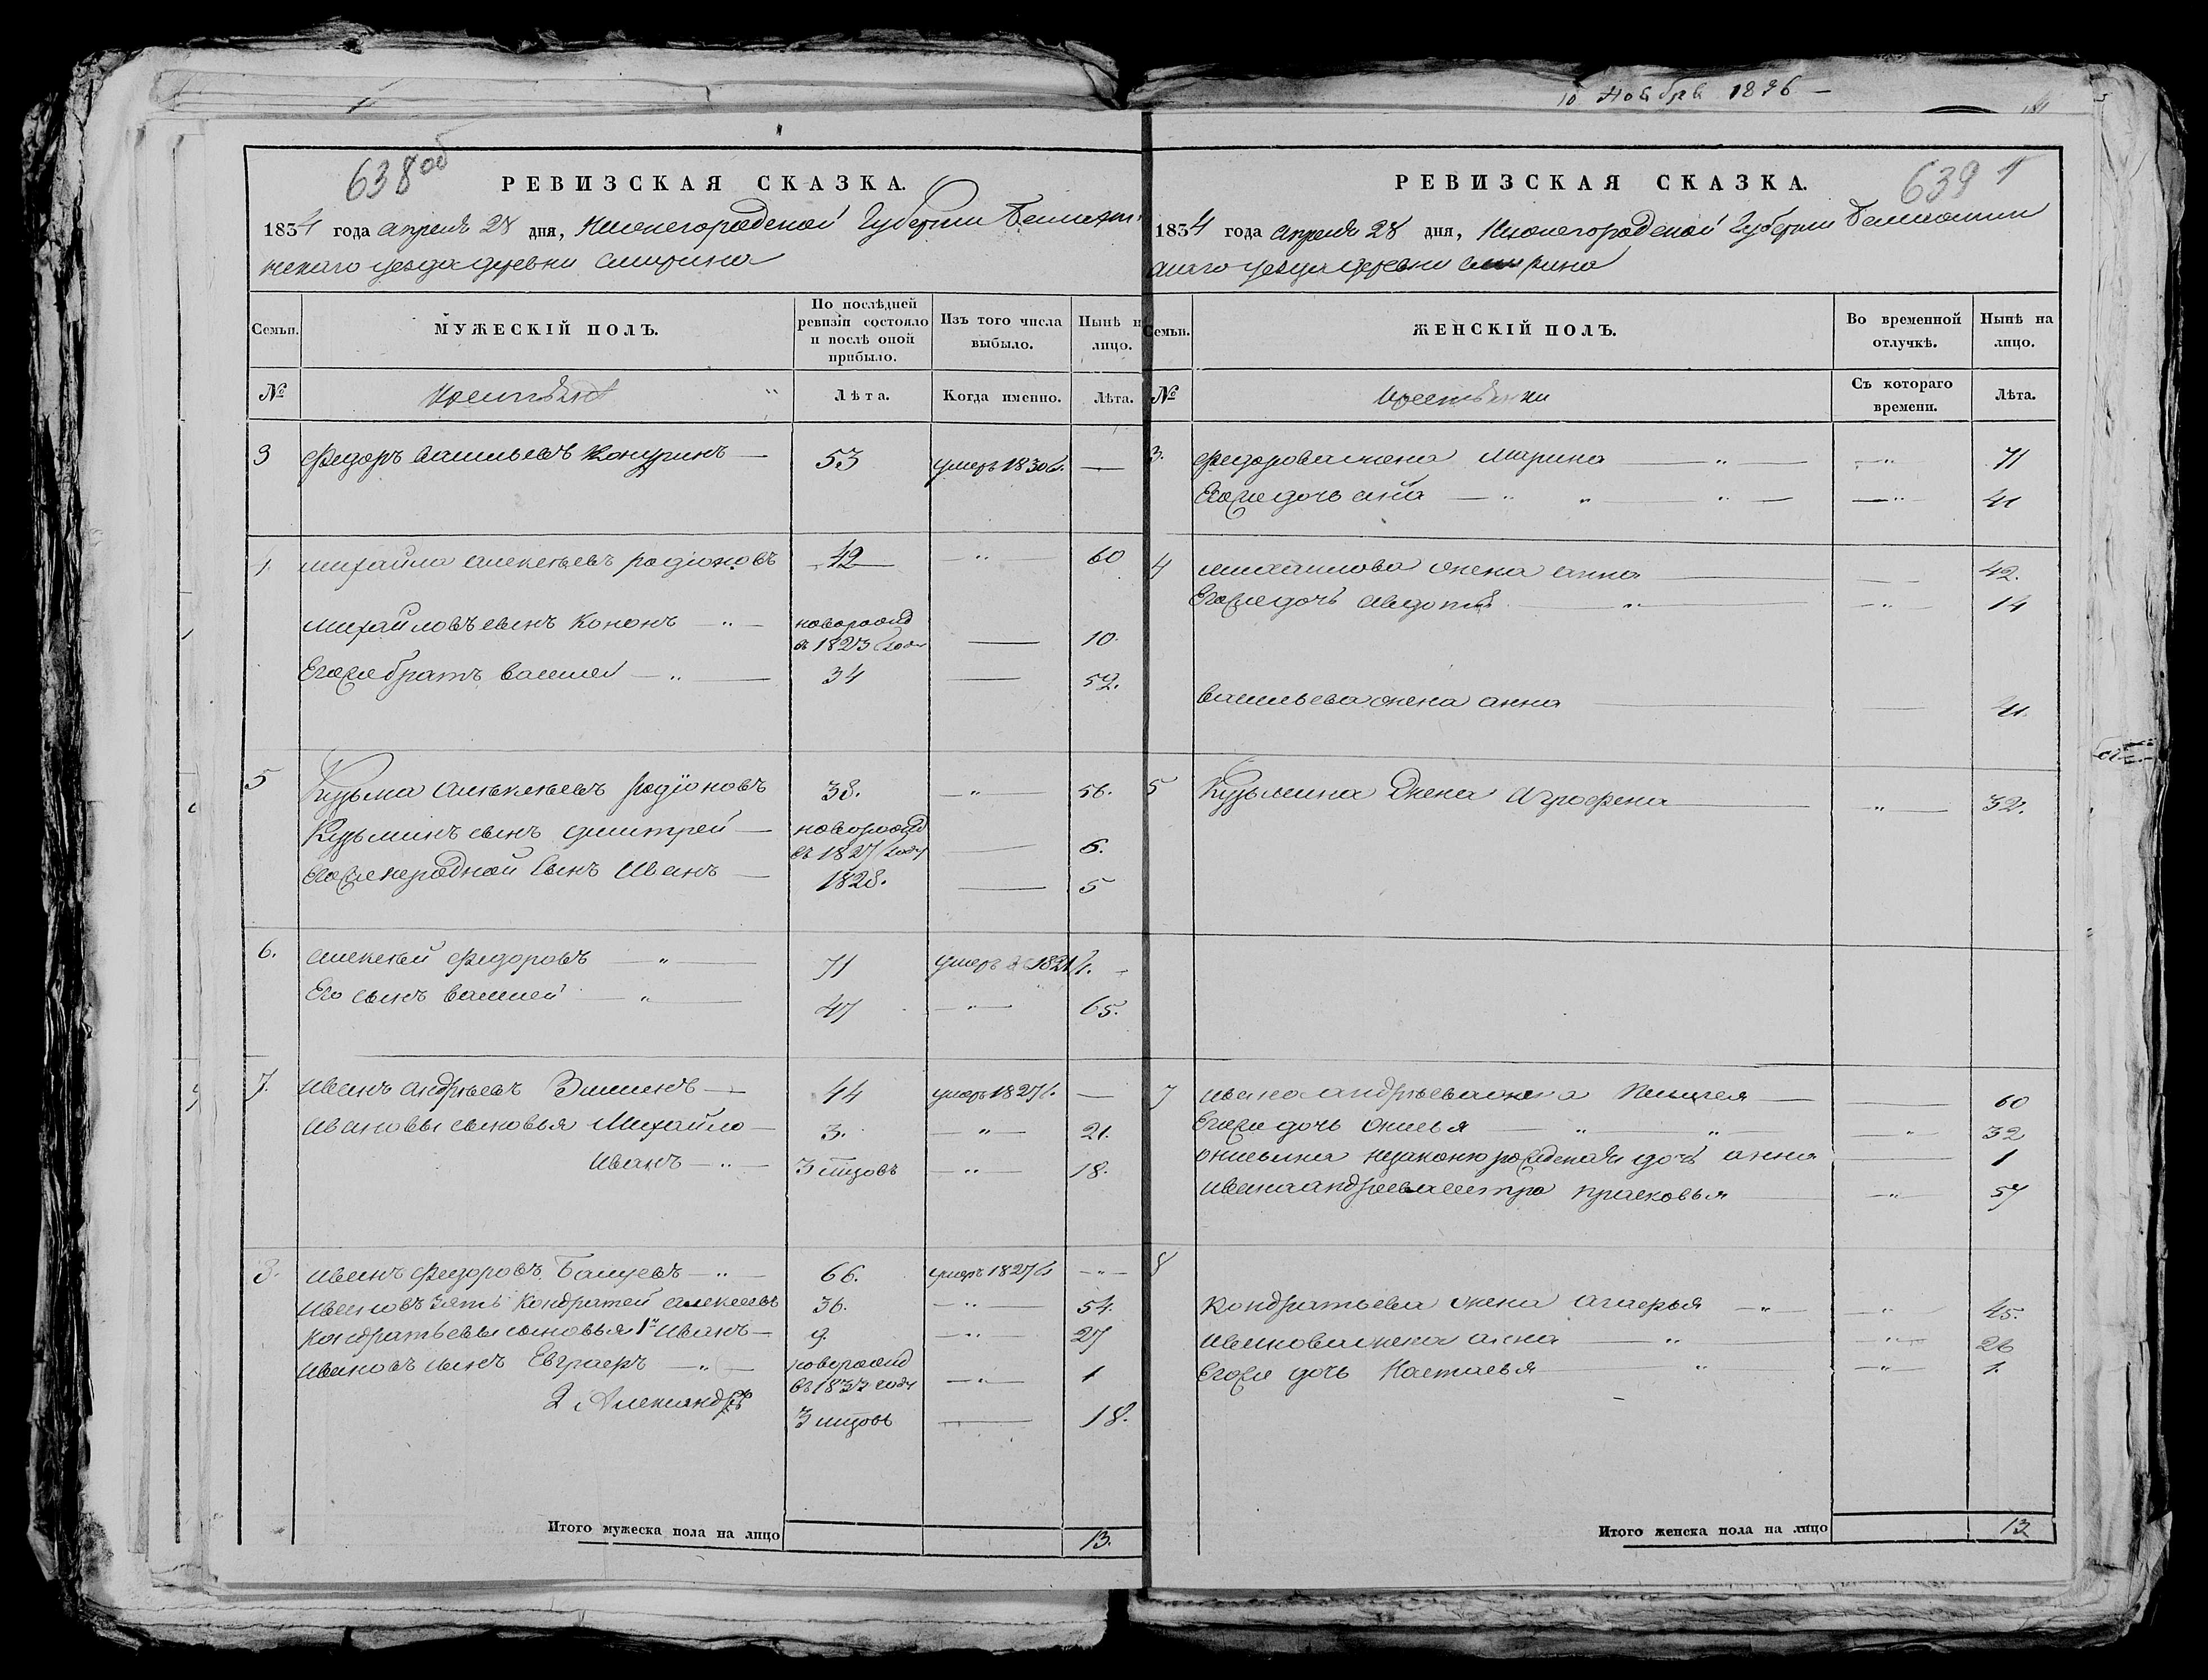 10 Ноября 18
638 об
РЕВИЗСКАЯ СКАЗКА.
1834 года апреля 28 дня, Нижегородской Губернии
уезда деревни
Семьи. МУЖЕСКІЙ ПОЛЪ. По послѣдней ревизіи состояло и послѣ оной прибыло. Изъ того числа выбыло. Нынѣ н лицо.
№ Крестьяне Лѣта. Когда именно. Лѣта.
3 Федоръ Васильевъ Конуринъ 53 умеръ 1830 г. —
Михайло Алексѣевъ Родіоновъ 42 " 60
Михайловъ сынъ Кононъ новорожд
въ 1823 году — 10.
Егоже братъ Василей " 34 — 52.
5 Кузьма Алексѣевъ Родіоновъ 38. " 56.
Кузьминъ сынъ Дмитрей новорожд
въ 1827 году — 6.
Егоже неродной сынъ Иванъ 1828. — 5
6. Алексѣй Федоровъ " 71 умеръ —
Его сынъ Василей " 47 " 65.
7. Иванъ Андрѣевъ Зиминъ 44 умеръ 1827 г. —
Ивановы сыновья Михайло 3. " 21.
Иванъ " 3 мцовъ " 18.
8. Иванъ Федоровъ " 66. умеръ 1827 г "
Ивановъ зять Кондратей Алексеевъ 36. " 54.
Кондратьевы сыновья 1й Иванъ 9. " 27
Ивановъ сынъ Евграфъ " новорожд
въ году " 1
2 Александръ 3 мцовъ — 18.
Итого мужеска пола на лицо 13.
639
РЕВИЗСКАЯ СКАЗКА.
1834 года апреля 28 дня, Нижегородской Губернии
уезда деревни
Семьи. ЖЕНСКІЙ ПОЛЪ. Во временной отлучкѣ. Нынѣ на лицо.
№ Крестьянки Съ котораго времени. Лѣта.
3. Федорова жена Марина " " 71
Егоже дочь " " " " 41
4 Михайлова жена Анна — 42.
Егоже дочь Авдотья " " 14
Васильева жена Анна — 41.
5 Кузьмина жена Аграфена " 32.
7 Ивана Андрѣева жена — 60
Егоже дочь " " " 32
незаконорожденная дочь Анна — 1
Ивана Андреева сестра Прасковья " 57
8
Кондратьева жена Агафья " " 45.
Иванова жена Анна " " 26
Егоже дочь Настасья " " 1.
Итого женска пола на лицо 13